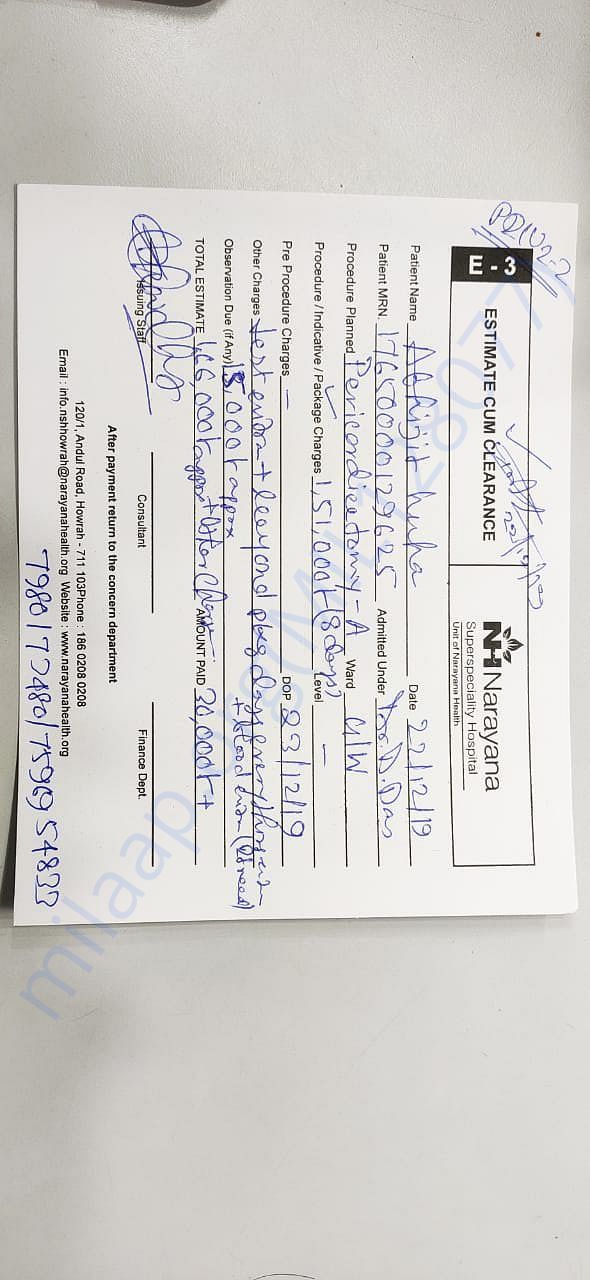 E - 3
ESTIMATE CUM CLEARANCE
NH Narayana
Superspeciality Hospital
Unit of Narayana Health
Patient Name Abhijit Guha Date 22/12/19
Patient MRN. 17650000129625 Admitted Under Dr. D. Das
Procedure Planned Pericardiectomy - A Ward G/W
Procedure / Indicative / Package Charges 1,51,000/- (8 days) Level -
Pre Procedure Charges - DOP 23/12/19
Other Charges beyond pkg days + blood (if need)
Observation Due (if Any) 15,000/- approx
TOTAL ESTIMATE 1,66,000/- approx + other AMOUNT PAID 30,000/- +
Issuing Staff
Consultant
Finance Dept.
After payment return to the concern department
120/1, Andul Road, Howrah - 711 103Phone : 186 0208 0208
Email : info.nshhowrah@narayanahealth.org Website : www.narayanahealth.org
milaap.org